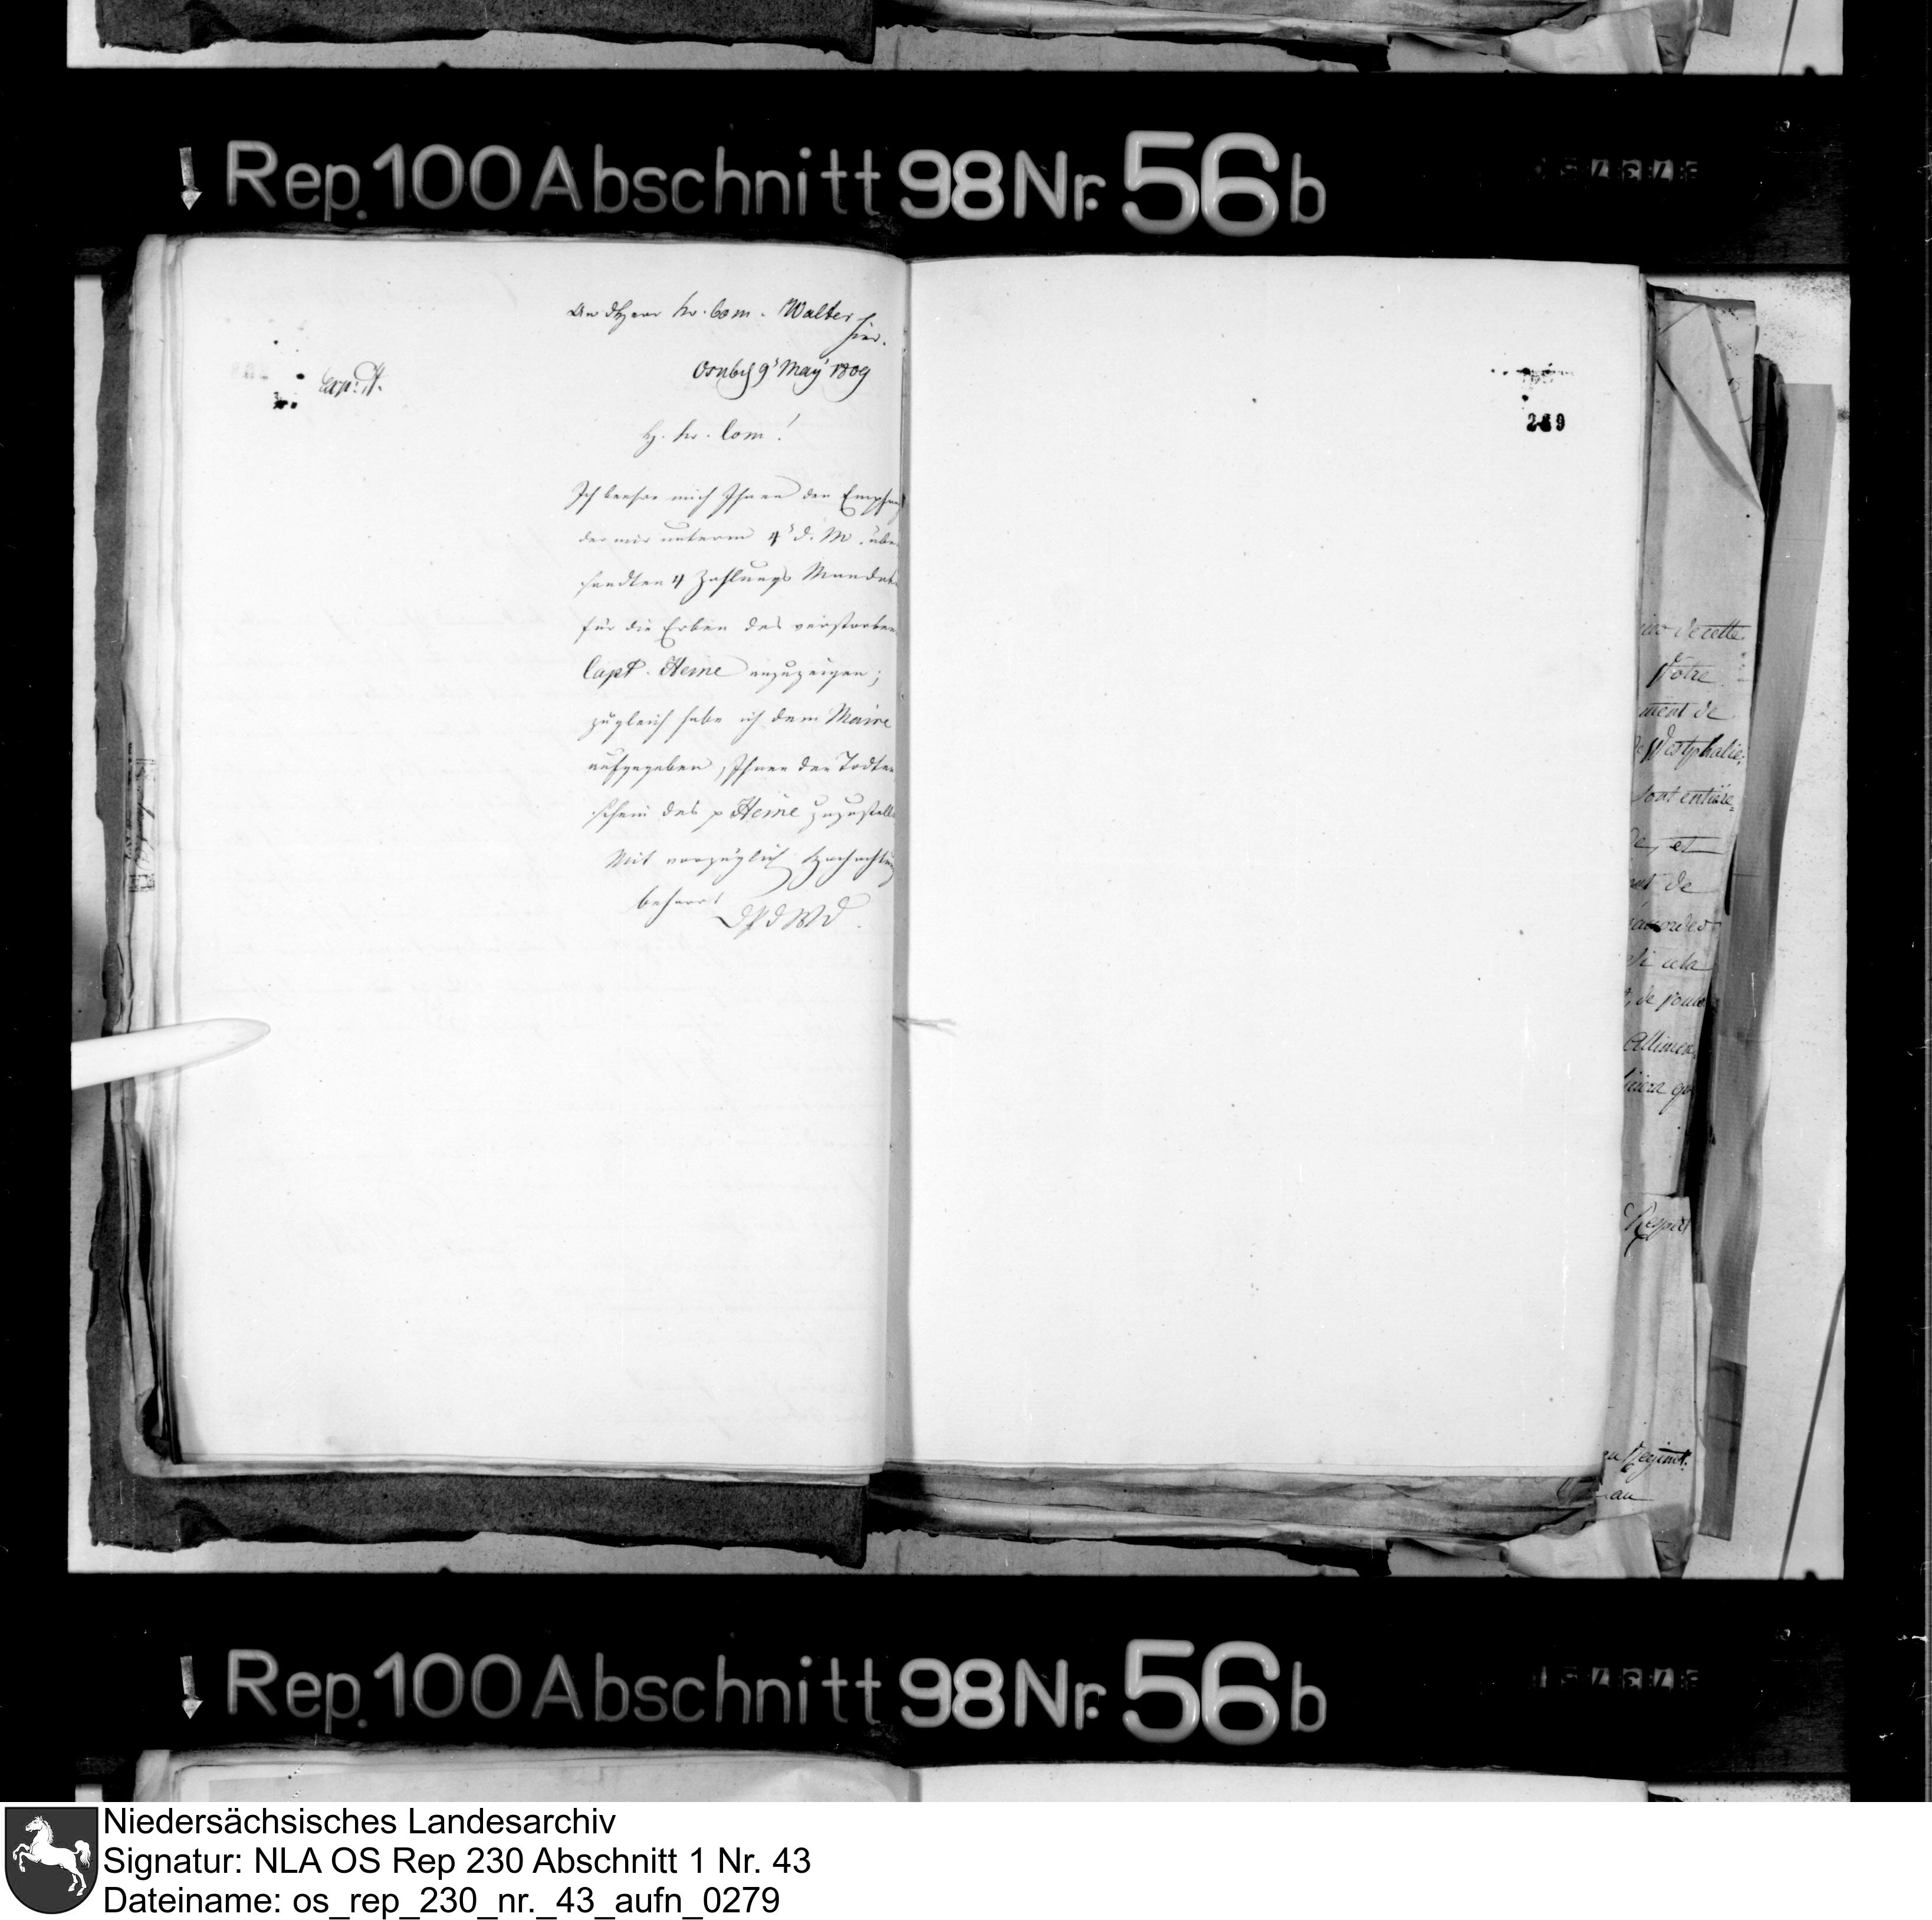 Rep. 100 Abschnitt 98 Nr. 56 b
An d Herrn Kr. Com. Walter
hier.
Osnbg 9 May 1809
exp:
H. Kr. Com!
Ich beehre mich Ihnen den Empfang
der mir unterm 4 d. M. über
sandten 4 Zahlungs Mandate
für die Erben des verstorben
Capt. Heine anzuzeigen;
zugleich habe ich dem Maire
aufgegeben, Ihnen den Todten
schein des p Heine zuzustell
Mit vorzüglich Hochachtung
beharrt
D P d W D.
269
de cette
Votre
ment de
Westphalie,
sont entière=
de, et
de
accorder
si cela
, de pouv
Alimen
Respect
Regimt.
au
Rep. 100 Abschnitt 98 Nr. 56 b
Niedersächsisches Landesarchiv
Signatur: NLA OS Rep 230 Abschnitt 1 Nr. 43
Dateiname: os_rep_230_nr._43_aufn_0279